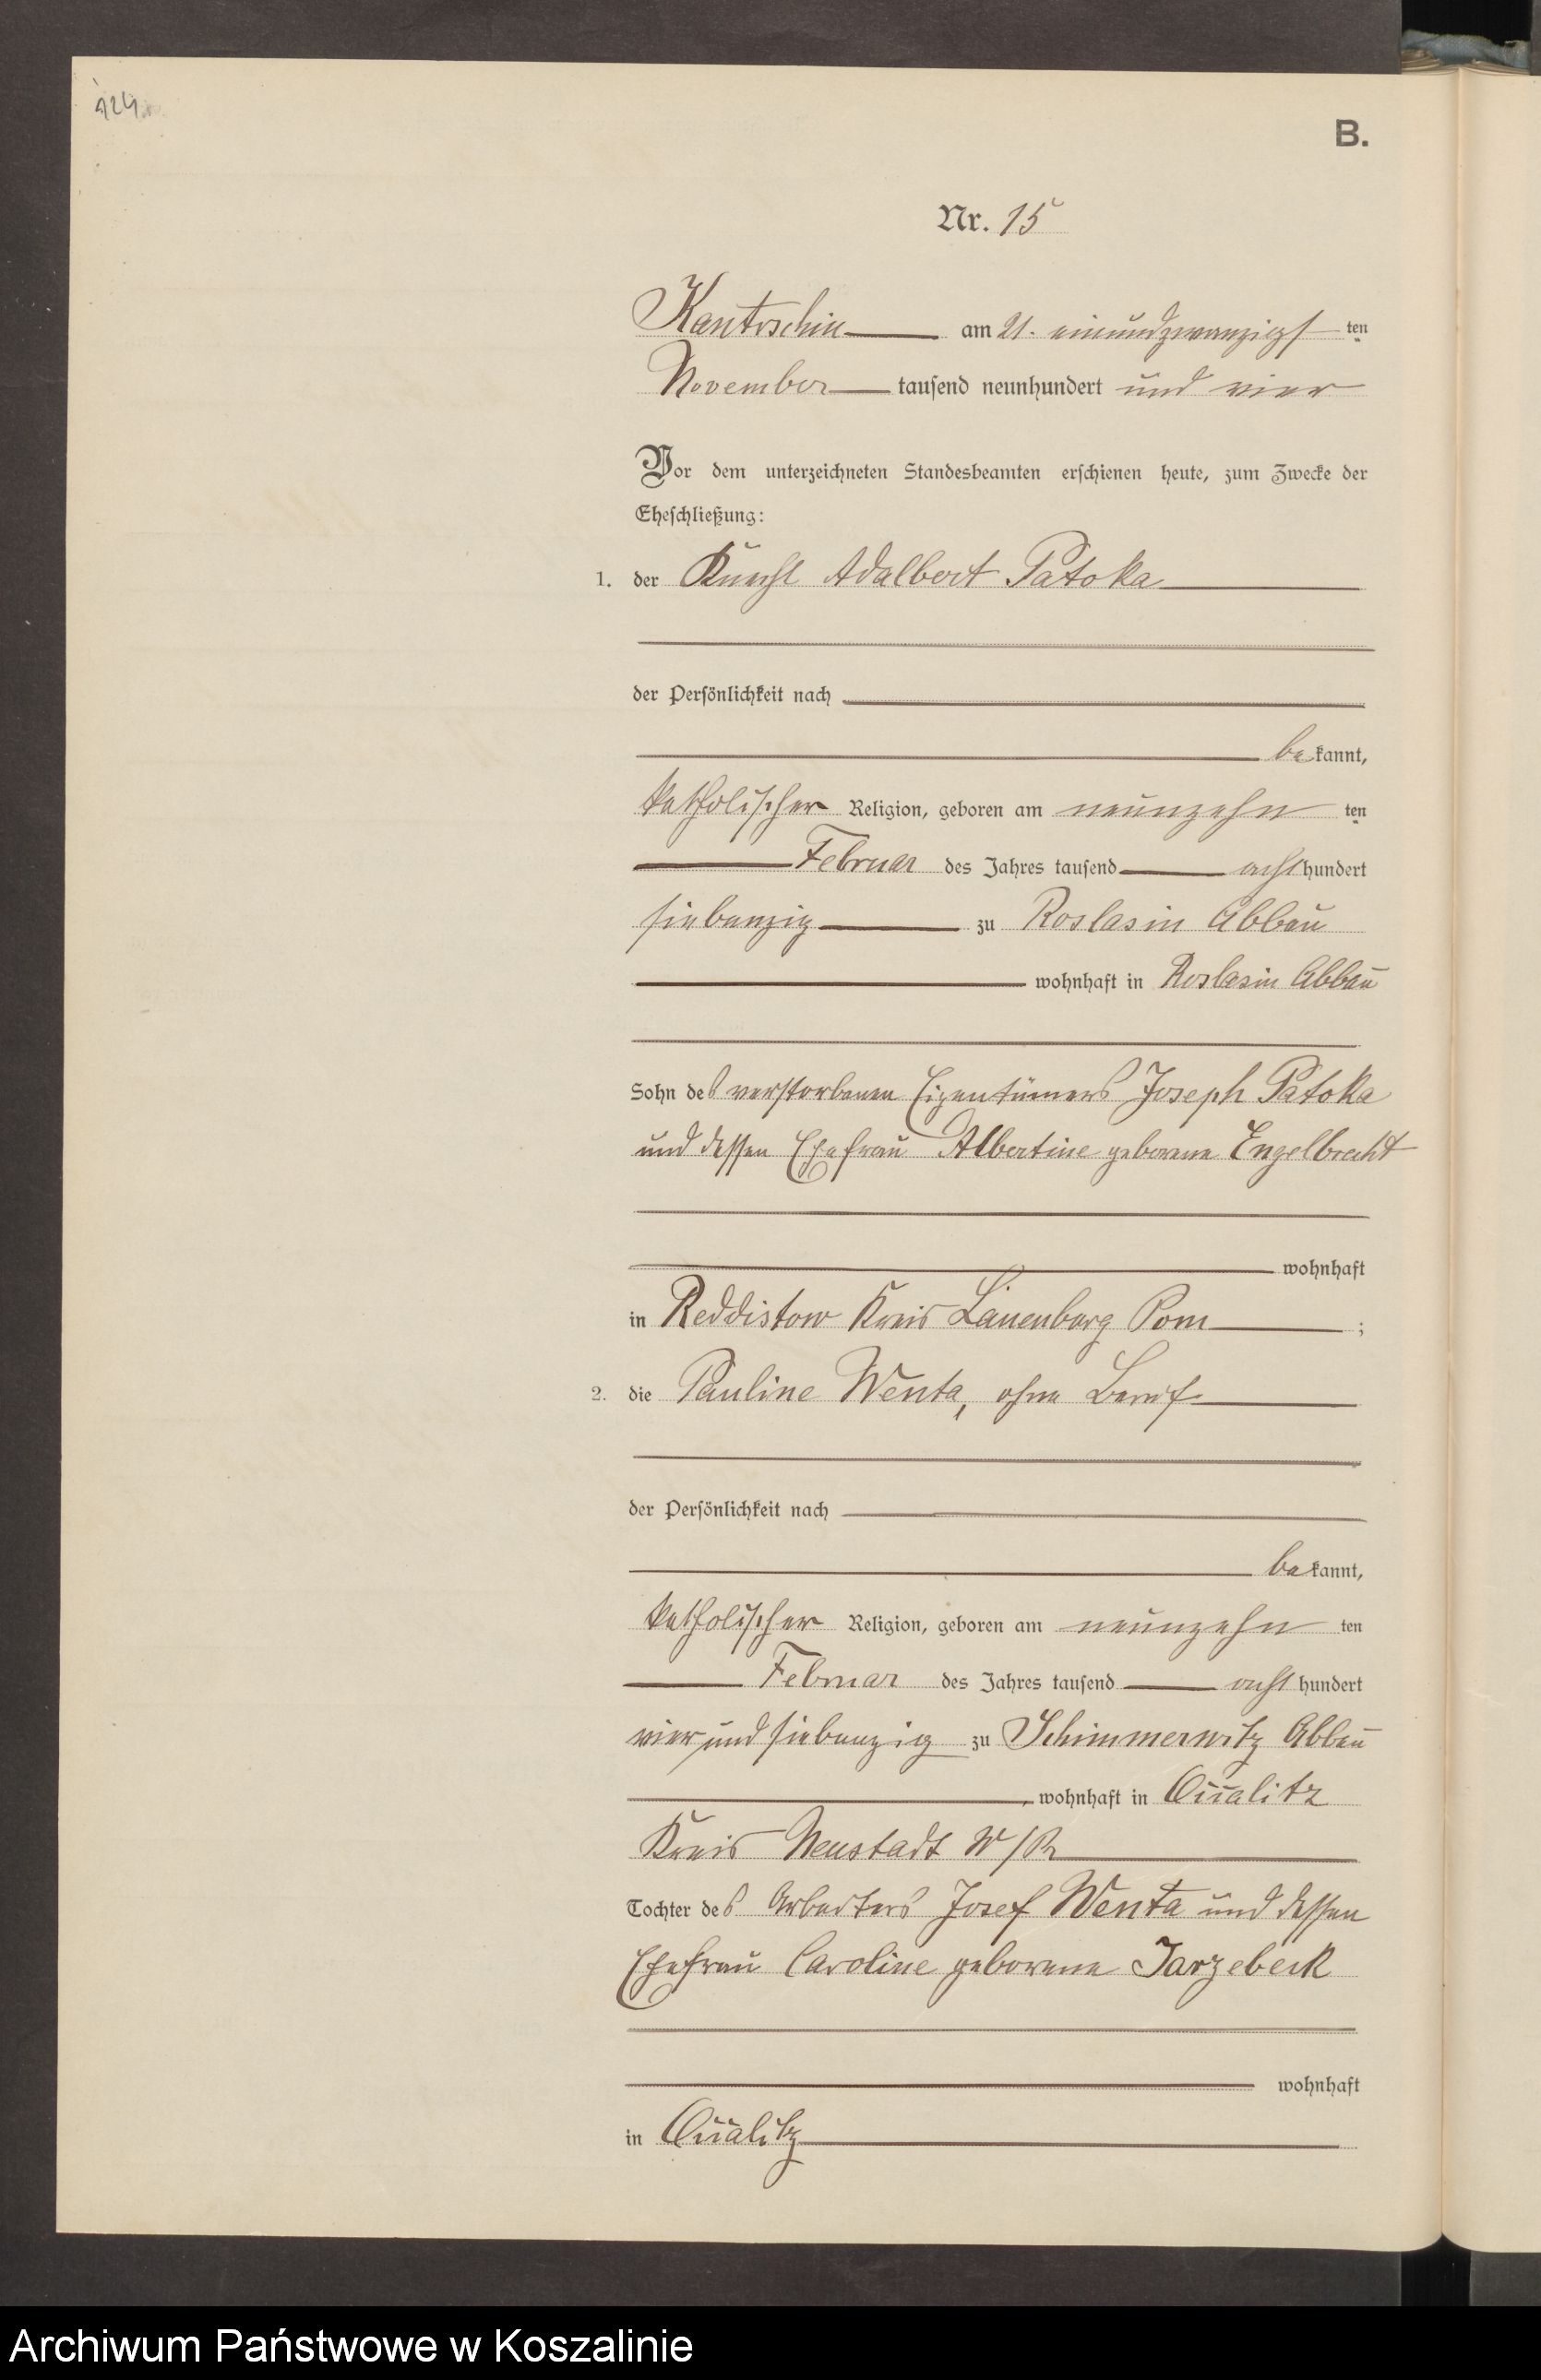 124
B.
Nr. 15
Kantrschin am 21. einundzwanzigsten
November tausend neunhundert und vier
Vor dem unterzeichneten Standesbeamten erschienen heute, zum Zwecke der
Eheschließung:
1. der Knecht Adalbert Patoka
der Persönlichkeit nach
bekannt,
katholischer Religion, geboren am neunzehnten
Februar des Jahres tausend achthundert
siebenzig zu Roslasin Abbau
wohnhaft in Roslasin Abbau
Sohn des verstorbenen Eigentümers Joseph Patoka
und dessen Ehefrau Albertine geborene Engelbrecht
wohnhaft
in Reddistow Kreis Lauenburg Pom ;
2. die Pauline Wenta, ohne Beruf
der Persönlichkeit nach
bekannt,
katholischer Religion, geboren am neunzehnten
Februar des Jahres tausend achthundert
vier und siebenzig zu Schimmerwitz Abbau
wohnhaft in Occalitz
Kreis Neustadt W/Pr
Tochter des Arbeiters Josef Wenta und dessen
Ehefrau Caroline geborene Jarzebeck
wohnhaft
in Occalitz
Archiwum Państwowe w Koszalinie